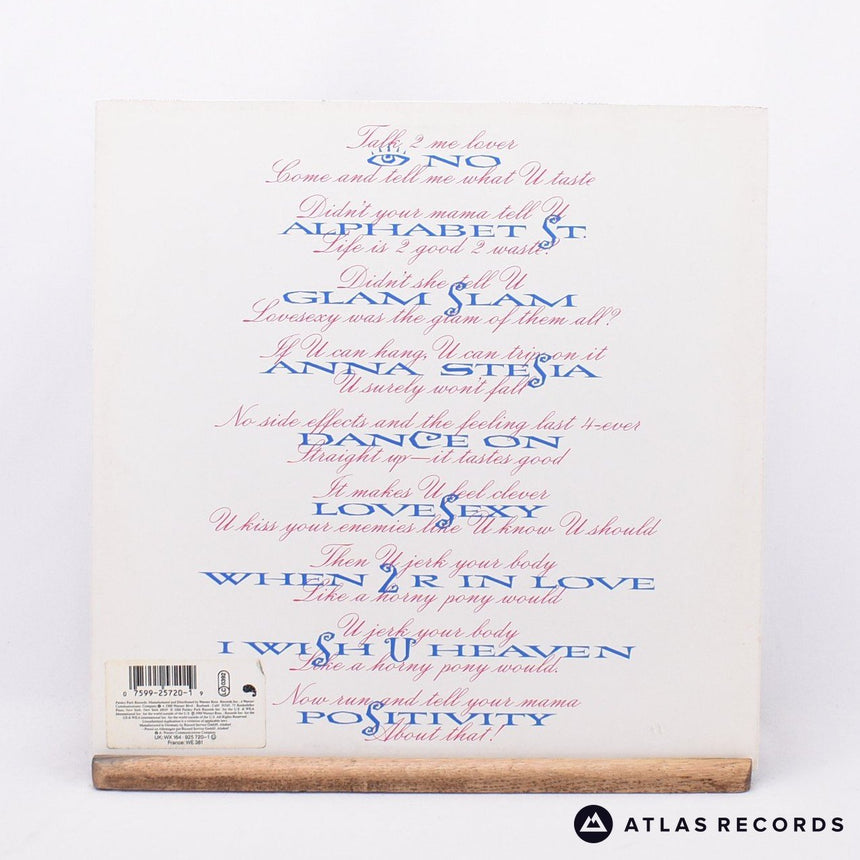 Talk 2 me lover
NO
Come and tell me what U taste
Didn't your mama tell U
ALPHABET ST.
Life is 2 good 2 waste.
Didn't she tell U
GLAM SLAM
Lovesexy was the glam of them all?
If U can hang, U can trip on it
ANNA STESIA
U surely won't fall
No side effects and the feeling last 4-ever
DANCE ON
Straight up—it tastes good
It makes U feel clever
LOVESEXY
U kiss your enemies like U know U should
Then U jerk your body
WHEN 2 R IN LOVE
Like a horny pony would
U jerk your body
I WISH U HEAVEN
Like a horny pony would.
Now run and tell your mama
POSITIVITY
About that!
0 7599-25720-1 9
UK: WX 164 925 720-1
France: WE 381
ATLAS RECORDS